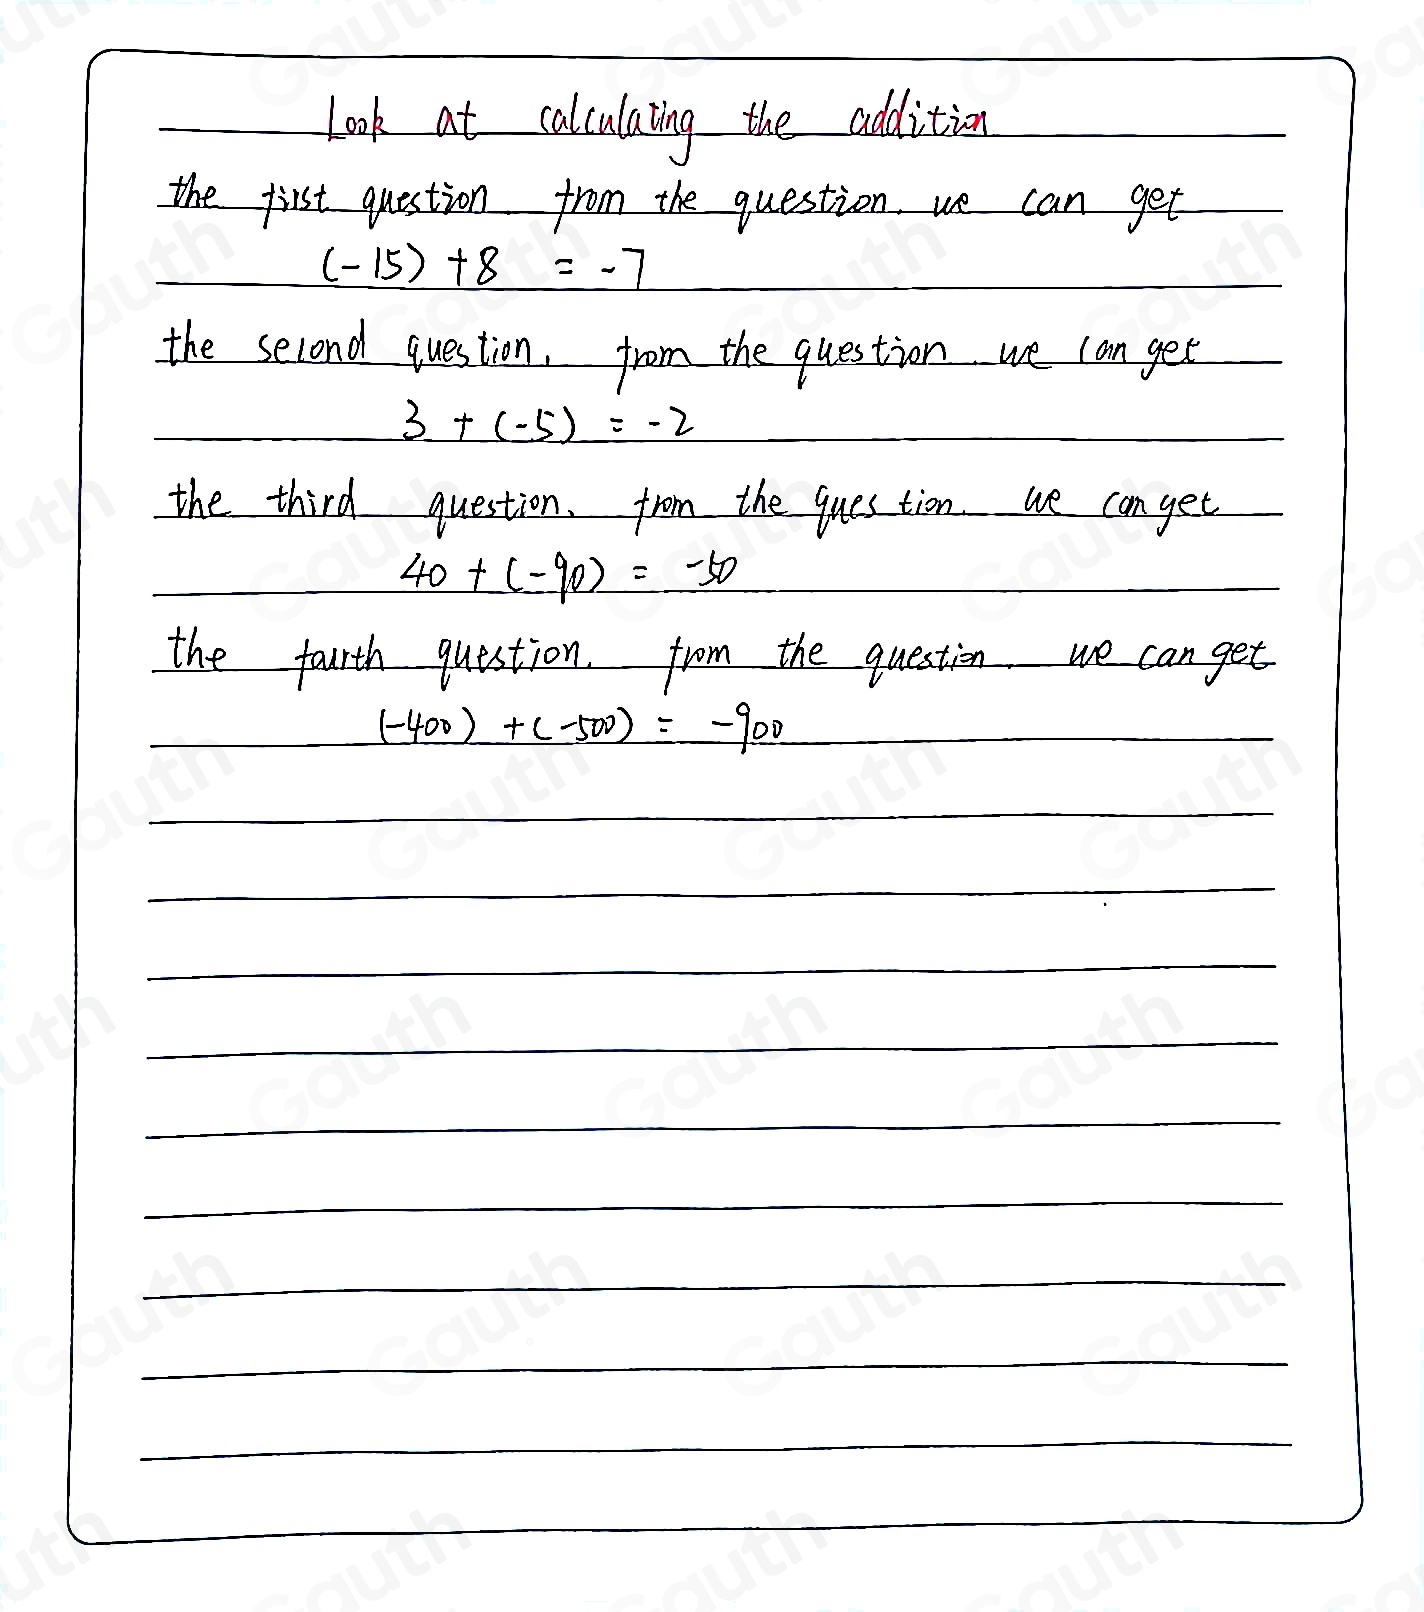 Look at calculating the addition
the first question from the question. we can get
(-15) +8 = -7
the second question, from the question we can get
3 + (-5) = -2
the third question, from the question. we can get
40 + (-90) = -50
the fourth question. from the question we can get
(-400) + (-500) = -900